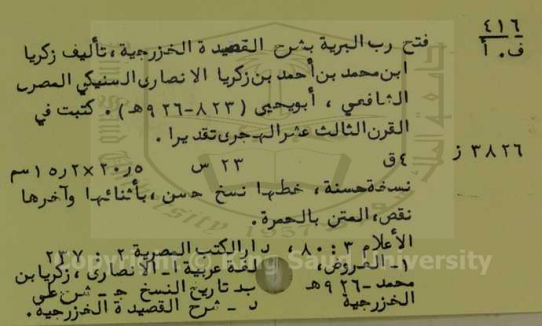 ٤١٦
ف . أ
فتح رب البرية بشرح القصيدة الخزرجية ، تأليف زكريا
ابن محمد بن أحمد بن زكريا الانصارى السنيكي المصرى
الشافعي ، أبويحيى (٨٢٣-٩٢٦هـ) . كتبت في
القرن الثالث عشر الهجرى تقديرا .
٣٨٢٦ ز
٤ق ٢٣ س ٢٠٫٥×١٥٫٢ سم
نسخة حسنة ، خطها نسخ حسن ، بأثنائها وآخرها
نقص، المتن بالحمرة .
الأعلام ٣ : ٨٠ ، دار الكتب المصرية ٢ : ٢٣٧
١- العروض، لغة عربية أ - الانصارى ، زكريا بن
محمد - ٩٢٦ هـ ب - تاريخ النسخ ج - شرح على
الخزرجية د - شرح القصيدة الخزرجية .
Copyright © King Saud University